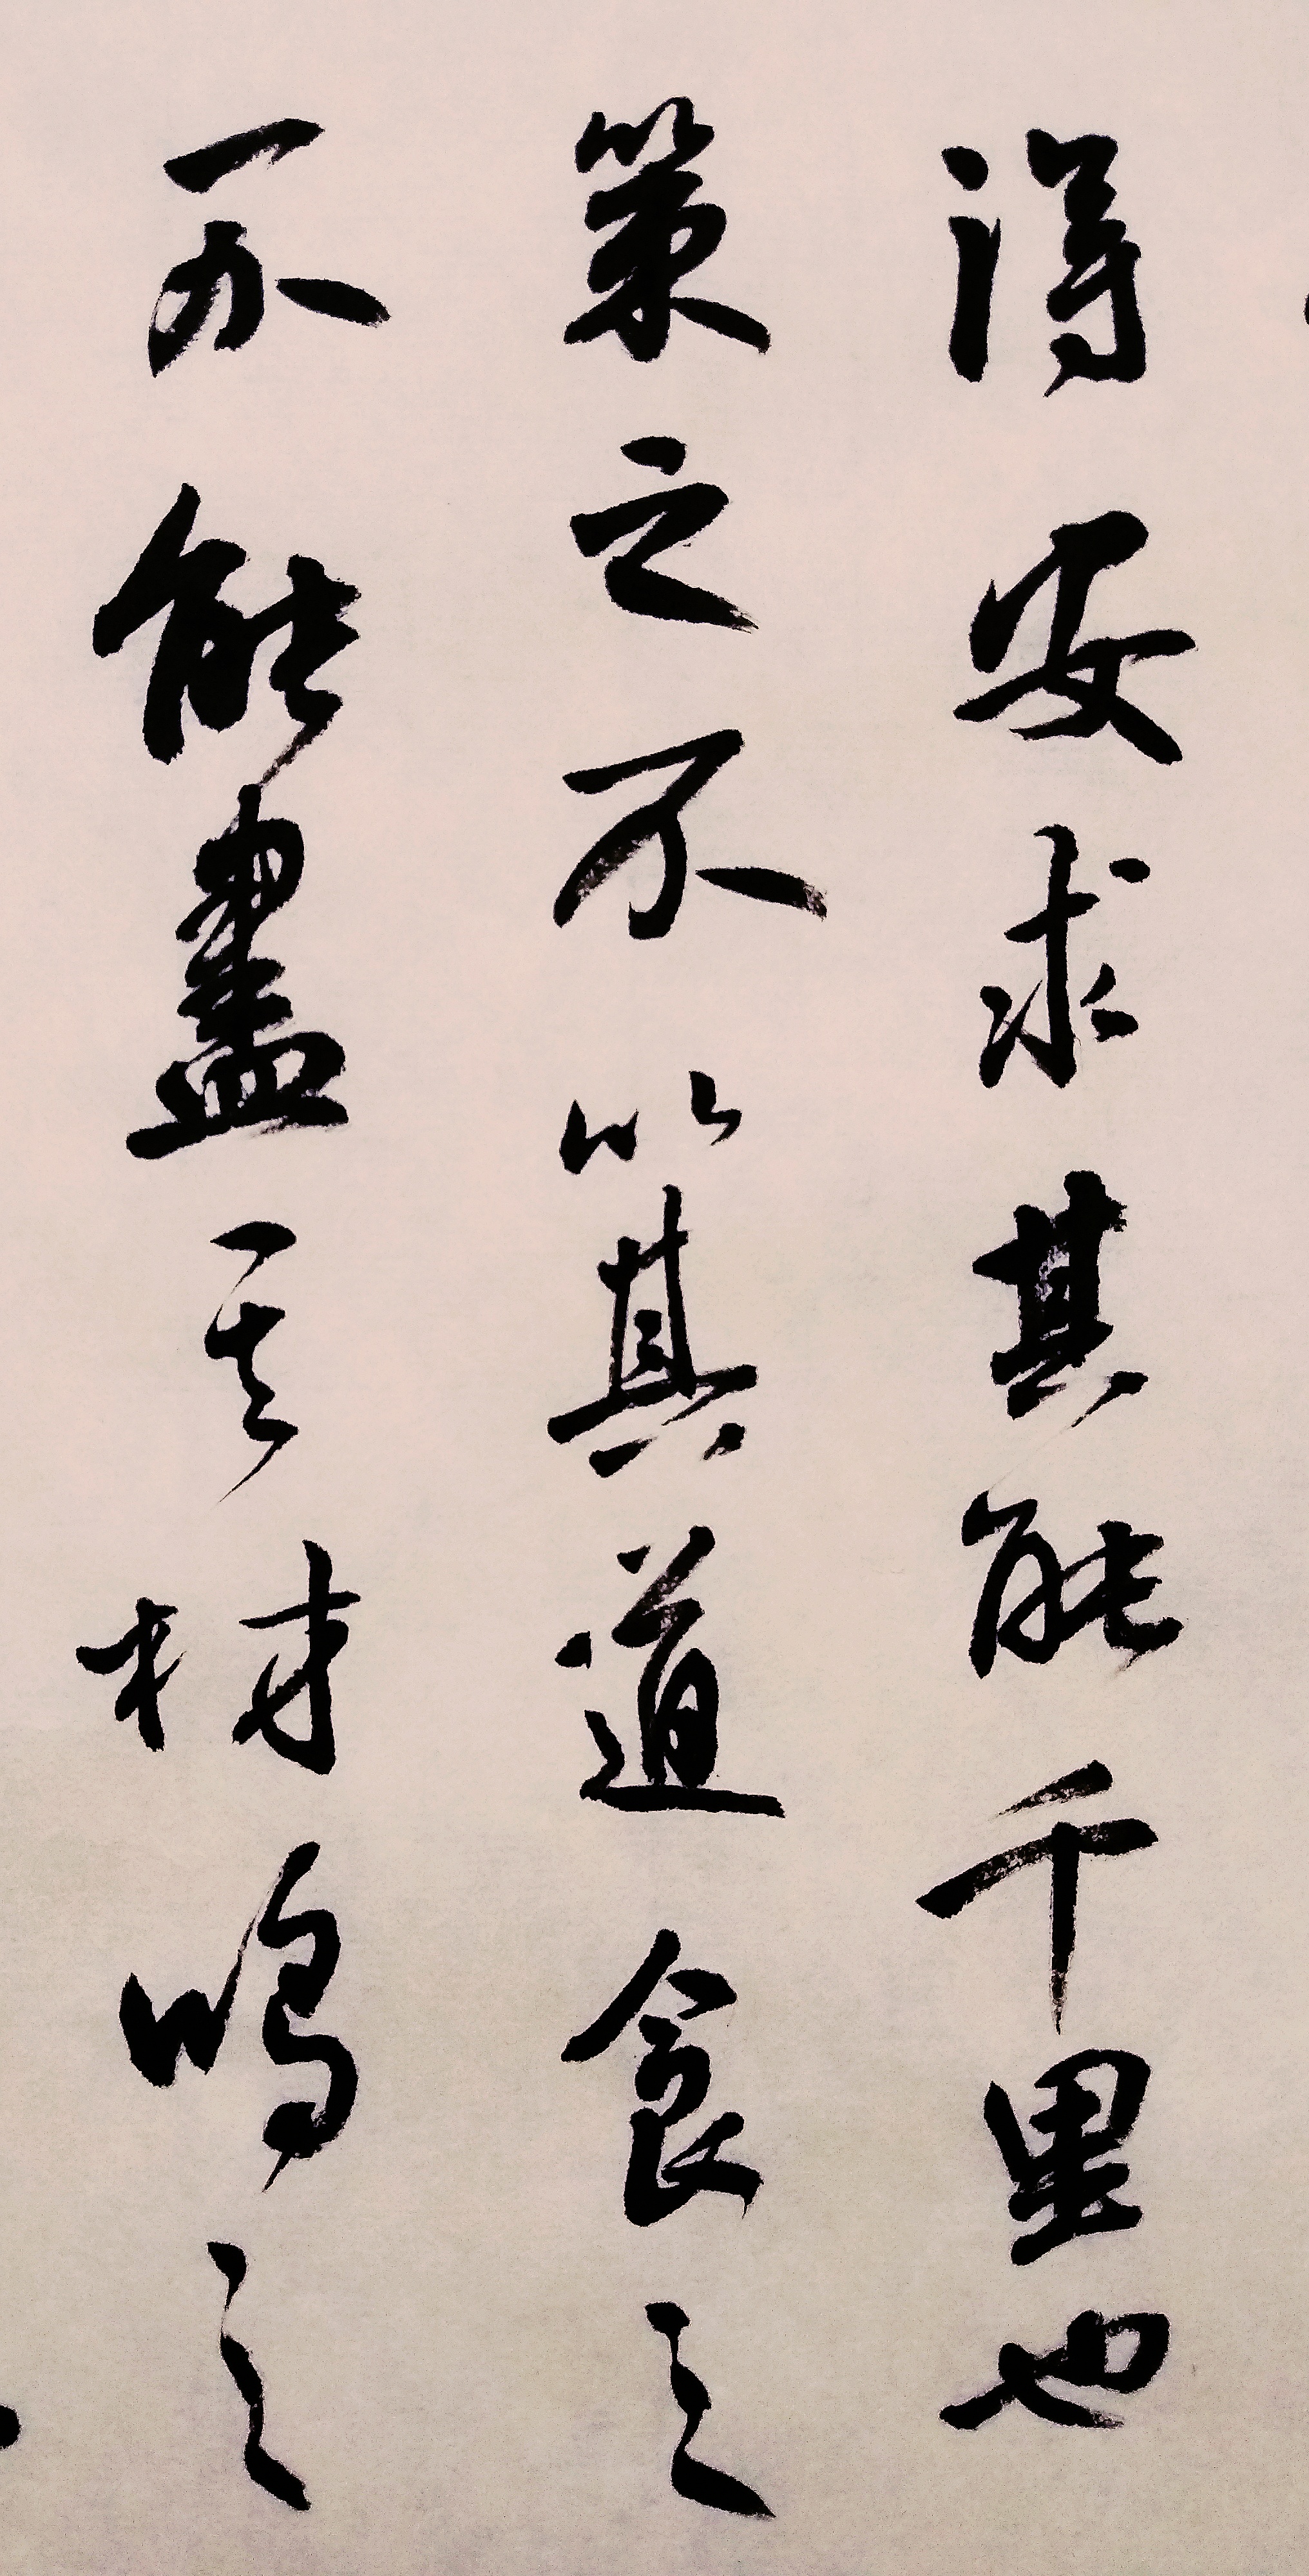 得安求其能千里也
策之不以其道食之
不能盡其材鳴之